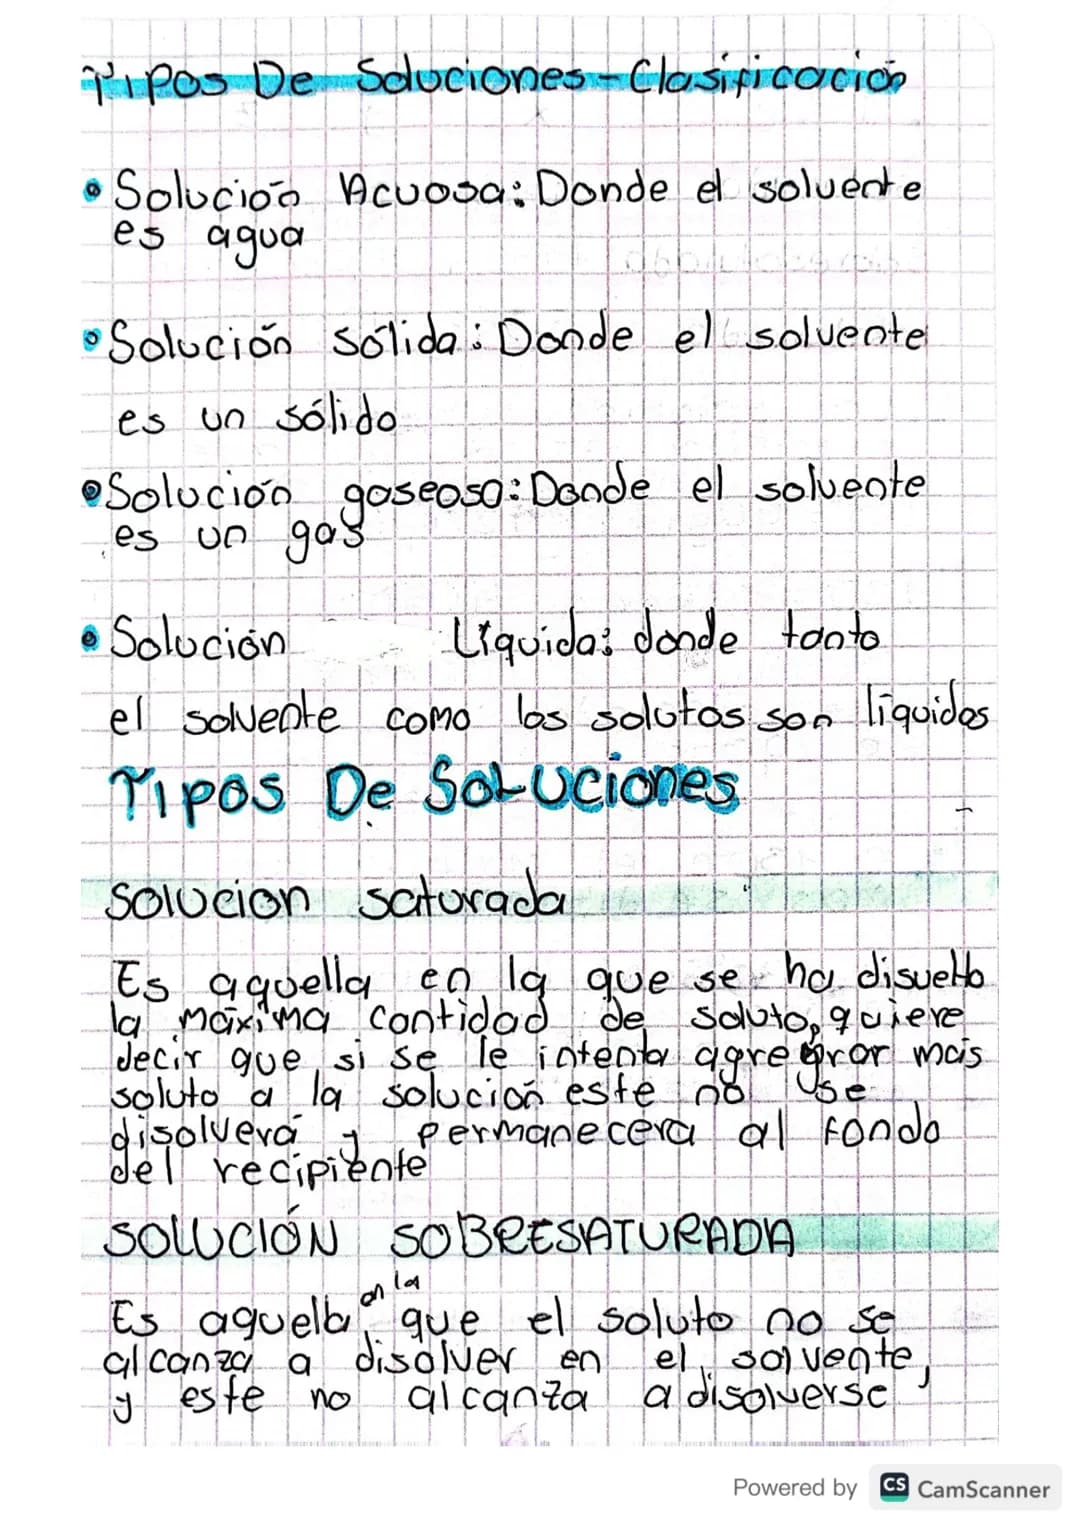 Tipos De Soluciones-Clasificación
Solución Acuosa: Donde el solvente
es agua
Solución sólida: Donde el solvente
es un sólido
Solución gaseosa: Donde el solvente
es un gas
Solución Líquida: donde tanto
el solvente como los solutos son líquidos
Tipos De Soluciones
Solucion saturada
Es aquella en la que se ha disuelto
la máxima cantidad de soluto, quiere
decir que si se le intenta agregrar más
soluto a la solución este no se
disolverá y permanecera al fondo
del recipiente
SOLUCIÓN SOBRESATURADA
en la
Es aquella que el soluto no se
alcanza a disolver en el solvente,
y este no alcanza a disolverse
Powered by CS CamScanner